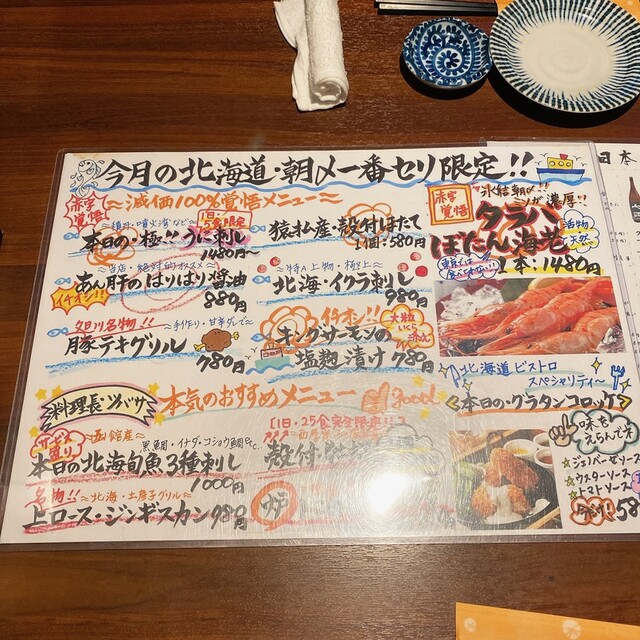 今月の北海道・朝〆一番セリ限定!!
赤字覚悟
≈減価100%覚悟メニュー≈
~積丹・噴火湾など~
本日の・極!!うに刺し
1480円~
猿払産・殻付ほたて
1個:580円
~当店・絶対的オススメ~
あん肝のぱりぱり醤油
イチオシ!!
880円
~特A上物・極上~
北海・イクラ刺し
980円
名物!!
~手作り・甘辛ダレで~
豚テキグリル
780円
イチオシ!!
キングサーモンの
塩麹漬け 780円
大粒
いくら
赤字覚悟
氷結朝〆!!
ミソが濃厚!!
タラバ
ぼたん海老
活物
天然
1本:1480円
北海道ビストロ
スペシャリティ~
<本日のグラタンコロッケ>
味を
えらんでネ
☆ウスターソース
☆トマトソース
料理長・ツバサ
本気のおすすめメニュー
good!
~函館産~
黒鯛・イナダ・コショウ鯛etc..
本日の北海旬魚3種刺し
1000円
【1日・25食完全限定!!】
殻付
名物!!
~北海・土産子グリル~
上ロース・ジンギスカン 980円
日本